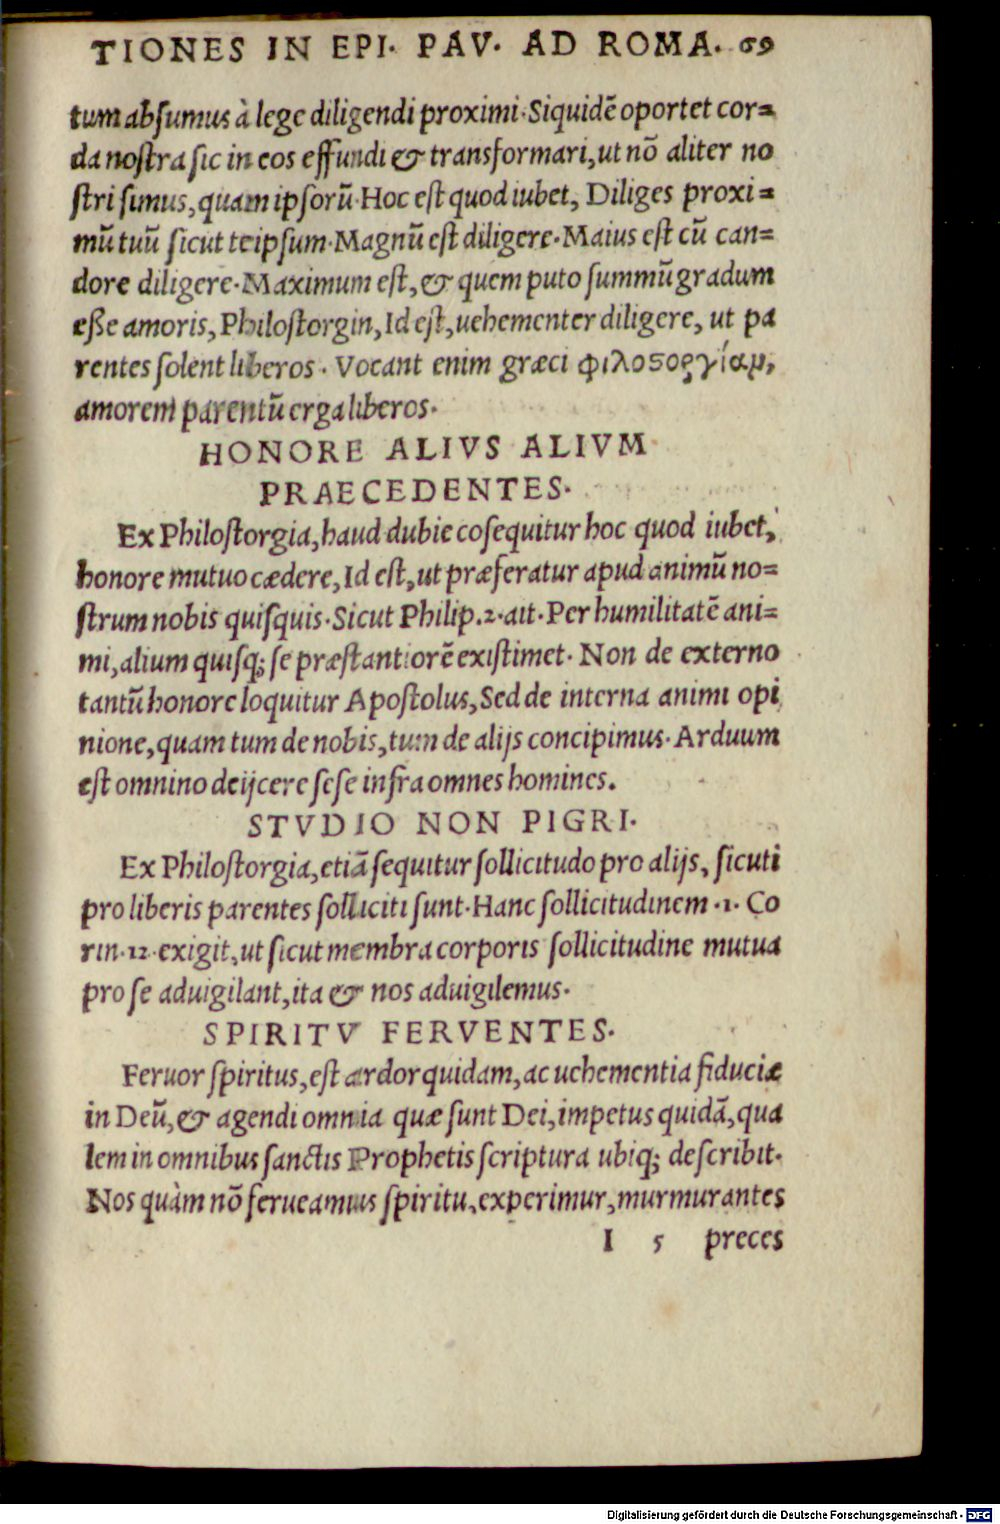 TIONES IN EPI. PAV. AD ROMA. 69
tum absumus à lege diligendi proximi. Siquidē oportet cor=
da nostra sic in eos effundi & transformari, ut nō aliter no
stri simus, quam ipsorū. Hoc est quod iubet, Diliges proxi=
mū tuū sicut teipsum. Magnū est diligere. Maius est cū can=
dore diligere. Maximum est, & quem puto summū gradum
eße amoris, Philostorgin, Id est, uehementer diligere, ut pa
rentes solent liberos. Vocant enim græci φιλοϛοργίαμ,
amorem parentū erga liberos.
HONORE ALIVS ALIVM
PRAECEDENTES.
Ex Philostorgia, haud dubie cosequitur hoc quod iubet,
honore mutuo cædere, Id est, ut præferatur apud animū no=
strum nobis quisquis. Sicut Philip. 2. ait. Per humilitatē ani=
mi, alium quisq; se præstantiorē existimet. Non de externo
tantū honore loquitur Apostolus, Sed de interna animi opi
nione, quam tum de nobis, tum de alijs concipimus. Arduum
est omnino deijcere sese infra omnes homines.
STVDIO NON PIGRI.
Ex Philostorgia, etiā sequitur sollicitudo pro alijs, sicuti
pro liberis parentes solliciti sunt. Hanc sollicitudinem .1. Co
rin. 12. exigit, ut sicut membra corporis sollicitudine mutua
pro se aduigilant, ita & nos aduigilemus.
SPIRITV FERVENTES.
Feruor spiritus, est ardor quidam, ac uehementia fiduciæ
in Deū, & agendi omnia quæ sunt Dei, impetus quidā, qua
lem in omnibus sanctis Prophetis scriptura ubiq; describit.
Nos quàm nō ferueamus spiritu, experimur, murmurantes
I 5 preces
Digitalisierung gefördert durch die Deutsche Forschungsgemeinschaft - DFG